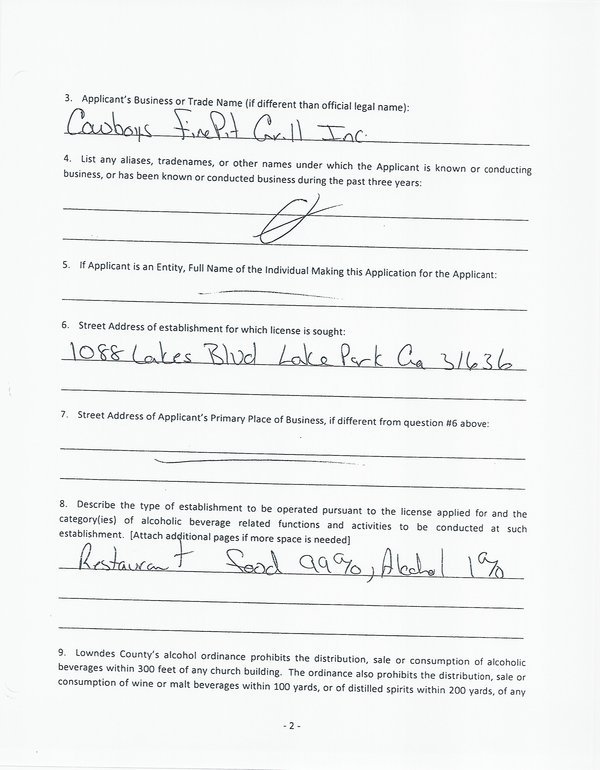 3. Applicant's Business or Trade Name (if different than official legal name):
Cowboys FirePit Grill Inc.
4. List any aliases, tradenames, or other names under which the Applicant is known or conducting
business, or has been known or conducted business during the past three years:
5. If Applicant is an Entity, Full Name of the Individual Making this Application for the Applicant:
6. Street Address of establishment for which license is sought:
1088 Lakes Blvd Lake Park Ga 31636
7. Street Address of Applicant's Primary Place of Business, if different from question #6 above:
8. Describe the type of establishment to be operated pursuant to the license applied for and the
category(ies) of alcoholic beverage related functions and activities to be conducted at such
establishment. [Attach additional pages if more space is needed]
Restaurant food 99%, Alcohol 1%
9. Lowndes County's alcohol ordinance prohibits the distribution, sale or consumption of alcoholic
beverages within 300 feet of any church building. The ordinance also prohibits the distribution, sale or
consumption of wine or malt beverages within 100 yards, or of distilled spirits within 200 yards, of any
- 2 -